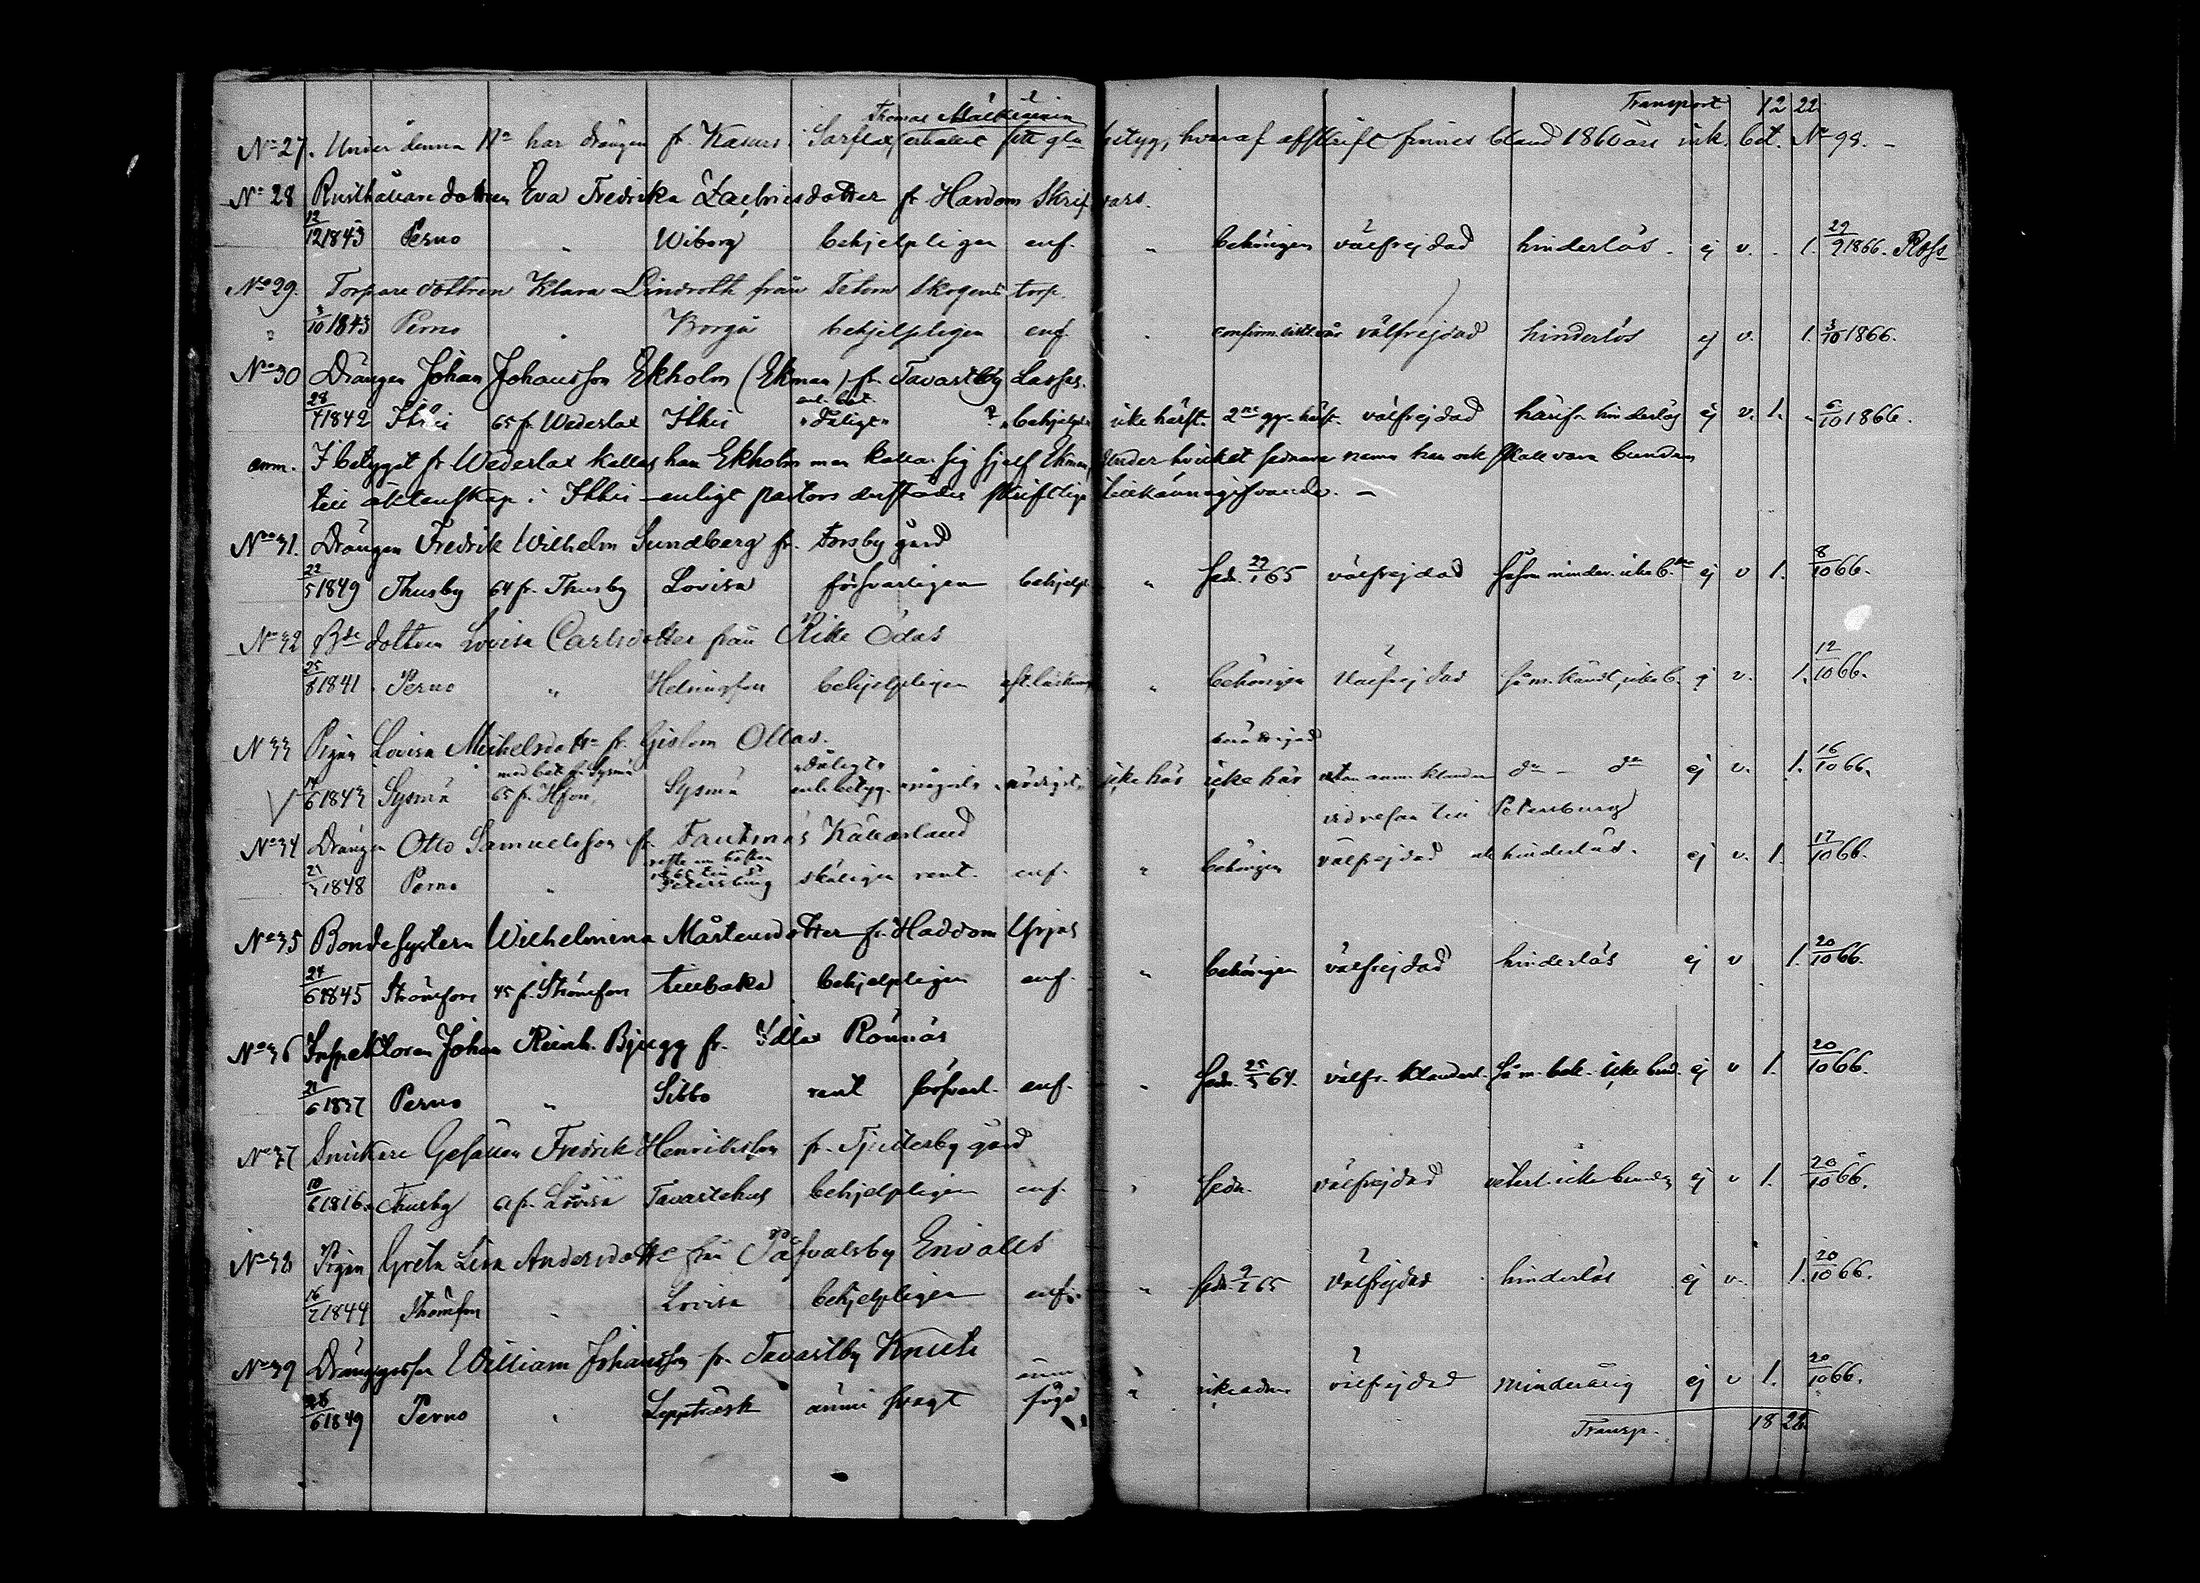 Transport 12 22
Thomas
No 27. Under denna No har drängen fr. Kasurs i Sarflax erhållit sitt gla betyg, hvaraf afskrift finnes bland 1860 års ink. bet. No 98. -
No 28 Rusthållare dottren Eva Fredrika Zachrisdotter fr Hardom Skrifvars.
12/12 1843 Perno " Wiborg behjelpligen enf. " behörigen välfrejdad hinderlös. ej v. . 1. 29/9 1866.
No 29. Torpare dottren Klara Lindroth från Tetom Skogens torp.
3/10 1843 Perno " Borgå behjelpligen enf. " välfrejdad hinderlös ej v. 1. 3/10 1866.
No 30 Drängen Johan Johansson Ekholm (Ekman) fr. Tavastby Lasses.
enl. bet.
28/4 1842 Itthis 65 fr. Wederlax Itthis "dåligt" ? "behjelpl" icke härst. 2ne gg. härst. välfrejdad härifr. hinderlös ej v. 1. " 6/10 1866.
anm. I betyget fr Wederlax kallas han Ekholm men kallar sig sjelf Ekman, under hvilket sednare namn han ock skall vara bunden
till äktenskap i Itthis enligt pastors derstädes skriftliga tillkännagifvande. -
No 31. Drängen Fredrik Wilhelm Sundberg fr. Forsby gård
22/5 1849 Thusby 64 fr. Thusby Lovisa försvarligen behjelpl " sedn. 22/1 65 välfrejdad såsom minder. icke b. ej v 1. 8/10 66.
No 32 Bde dottren Lovisa Carlsdotter från Rike Ödas
25/8 1841 Perno " Helsingfors behjelpligen " behörigen välfrejdad så m. kändt, icke b. ej v. 1. 12/10 66.
No 33 Pigan Lovisa Michelsdottr fr. Gislom Ollas.
med bet. fr. Sysmä "dåligt"
14/6 1843 Sysmä 65 fr. Hfors, Sysmä enl. betyg. "någorl." "nödigt" icke här icke här utan anm. klander do - do ej v. 1. 16/10 66.
vid resan till Petersburg
No 34 Drängen Otto Samuelsson fr. Fantsnäs Källarland
21/3 1848 Perno " Petersburg skäligen rent. enf. " behörigen välfrejdad och hinderlös. ej v. 1. 17/10 66.
No 35 Bondesystern Wilhelmina Mårtensdotter fr. Haddom Ufrjas
24/6 1845 Strömfors 45 fr. Strömfors tillbaka behjelpligen enf. " behörigen välfrejdad hinderlös ej v 1. 20/10 66.
No 36 Inspektoren Johan Reinh. Bjugg fr. Idlax Rönnäs
21/6 1837 Perno " Sibbo rent försvarl. enf. " sedn. 25/5 64. välfr. klanderl. så m. bek. icke bund. ej v 1. 20/10 66.
No 37 Snickare Gesällen Fredrik Henriksson fr. Tjusterby gård
10/6 1816. Thusby 61 fr. Lovisa Tavastehus behjelpligen enf. " sedn. välfrejdad veterl. icke bunden ej v 1. 20/10 66.
No 38 Pigan Greta Lisa Andersdottr från Påfvalsby Envalls
16/2 1844 Strömfors " Lovisa behjelpligen enf. " sedn. 9/2 65 välfrejdad hinderlös ej v. 1. 20/10 66.
No 39 Dränggossen William Johansson fr. Tavastby Knuts
26/6 1849 Perno " Lepptresk ännu svagt " välfrejdad minderårig ej v 1. 20/10 66.
Transp. 18 28